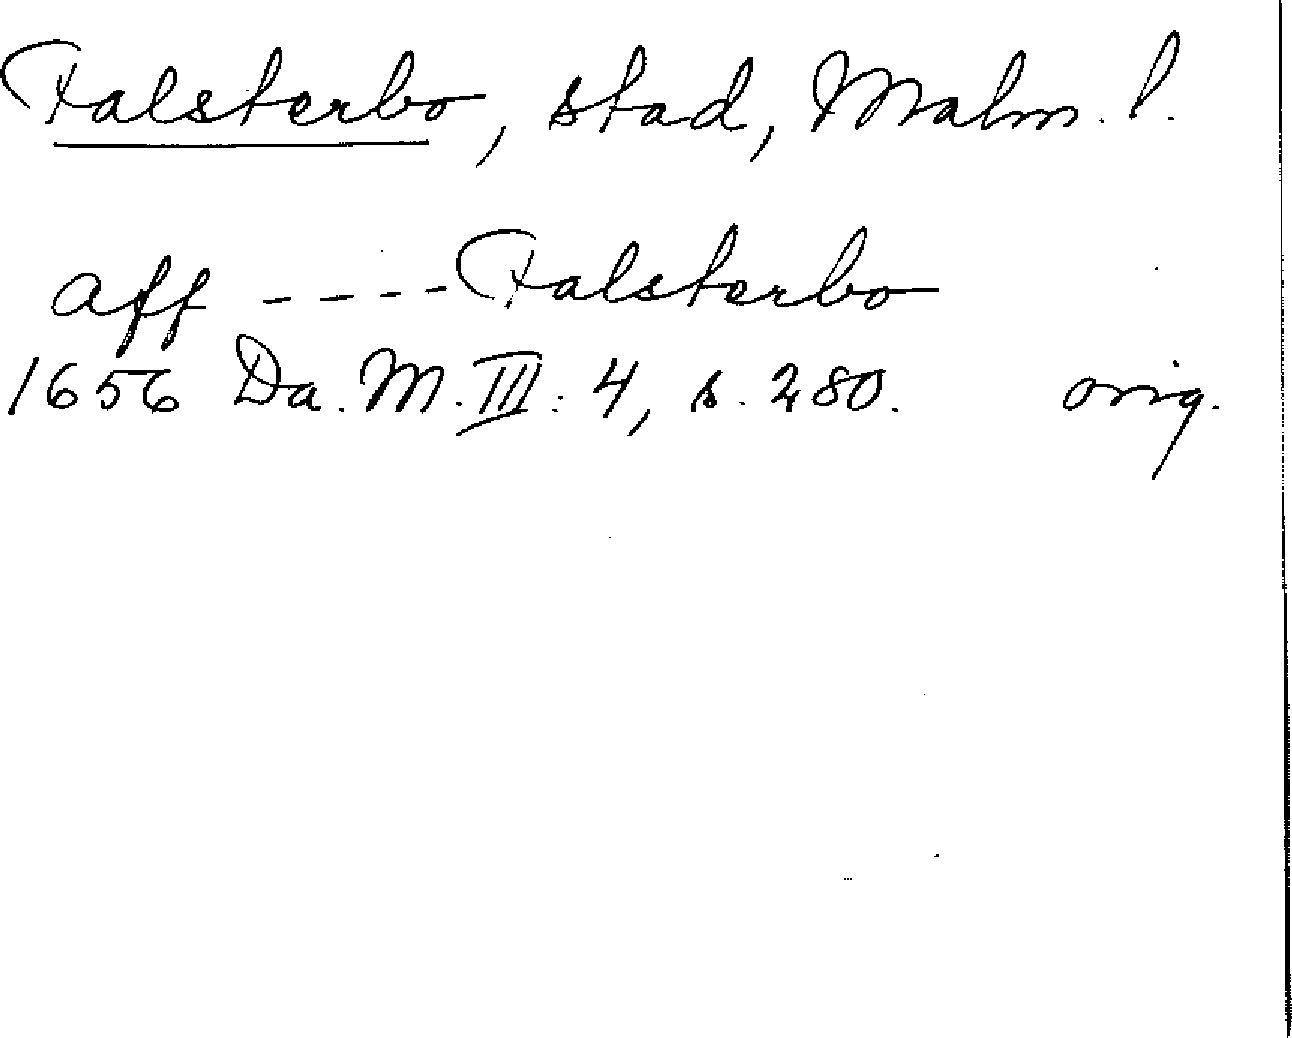 Falsterbo, stad, Malm. l.
aff ---- Falsterbo
1656 Da. M. III: 4, s. 280. orig.